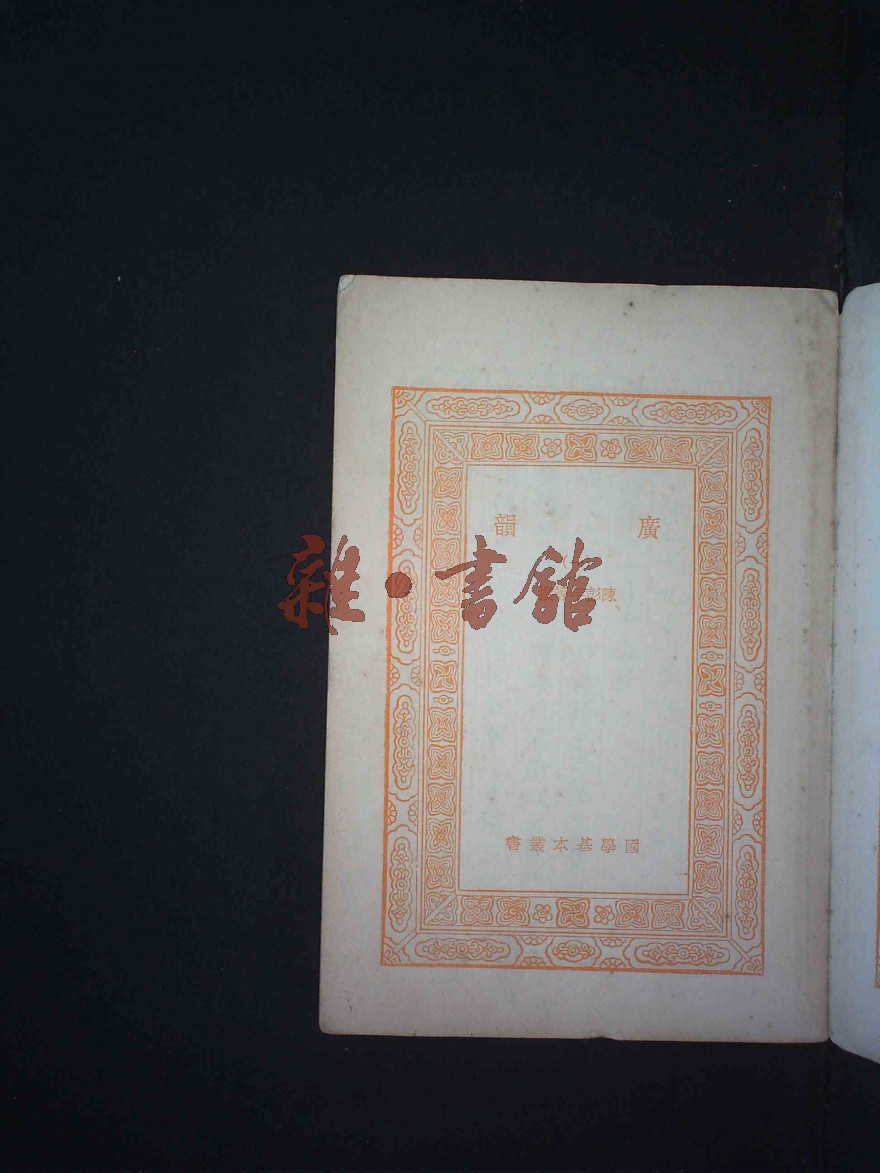 廣韻
陳彭
國學基本叢書
雜·書館